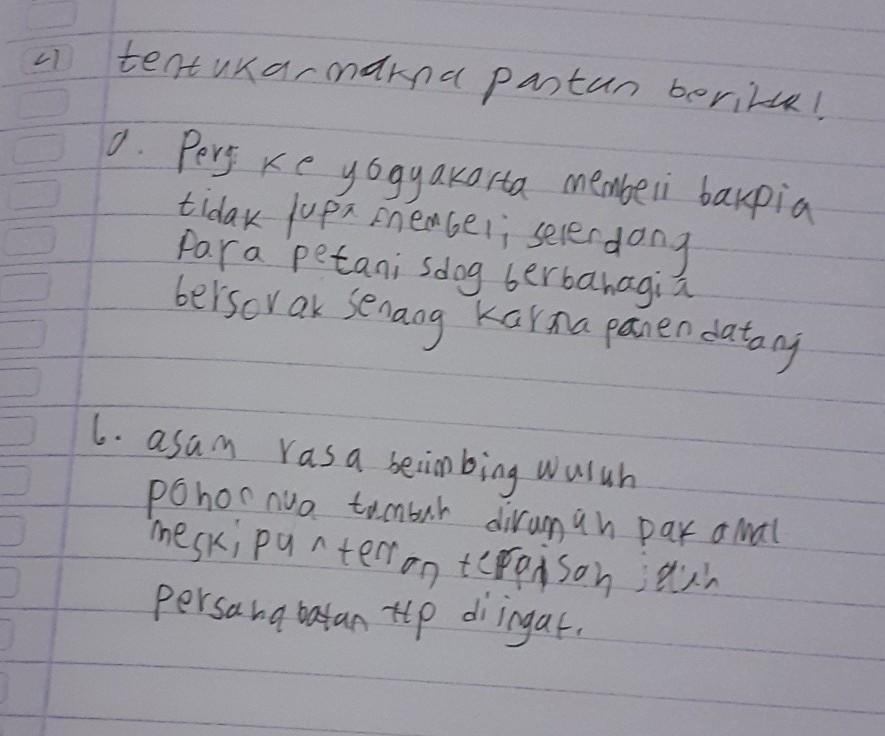 4) tentukan makna pantun berikut!
a. Pergi ke yogyakarta membeli bakpia
tidak lupa membeli selendang
Para petani sdog berbahagia
bersorak senang karna panen datang
b. asam rasa belimbing wuluh
pohonnya tumbuh dirumah pak amal
meskipun teman terpaisah jauh
persahabatan ttp diingat.